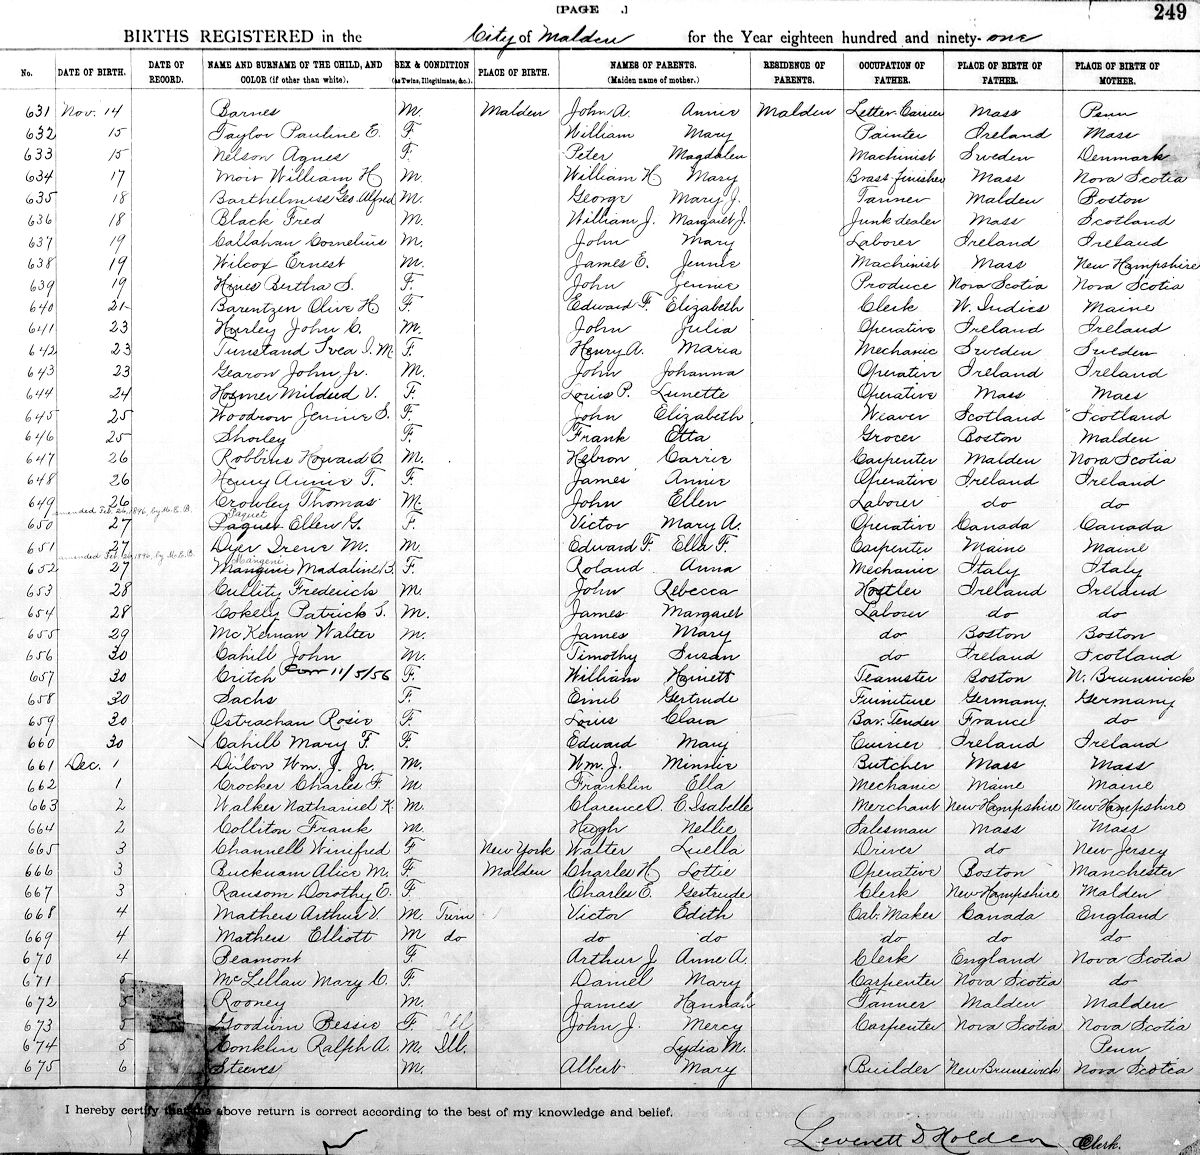 [PAGE .]
249
BIRTHS REGISTERED in the City of Malden for the Year eighteen hundred and ninety-one
No. DATE OF BIRTH. DATE OF RECORD. NAME AND SURNAME OF THE CHILD, AND COLOR (if other than white). SEX & CONDITION (as Twins, Illegitimate, &c.). PLACE OF BIRTH. NAMES OF PARENTS. (Maiden name of mother.) RESIDENCE OF PARENTS. OCCUPATION OF FATHER. PLACE OF BIRTH OF FATHER. PLACE OF BIRTH OF MOTHER.
631 Nov. 14 Barnes M. Malden John A. Annie Malden Letter-Carrier Mass Penn
632 15 Taylor Pauline E. F. William Mary Painter Ireland Mass
633 15 Nelson Agnes F. Peter Magdalen Machinist Sweden Denmark
634 17 Moir William H M. William H Mary Brass-finisher Mass Nova Scotia
635 18 Barthelmiss Geo. Alfred M. George Mary J. Tanner Malden Boston
636 18 Black Fred M. William J. Margaret J. Junk dealer Mass Scotland
637 19 Callahan Cornelius M. John Mary Laborer Ireland Ireland
638 19 Wilcox Ernest M. James E. Jennie Machinist Mass New Hampshire
639 19 Hines Bertha S. F. John Jennie Produce Nova Scotia Nova Scotia
640 21 Barentzen Olive H F. Edward F. Elizabeth Clerk W. Indies Maine
641 23 Hurley John C. M. John Julia Operative Ireland Ireland
642 23 Tunstand Svea I. M. F. Henry A. Maria Mechanic Sweden Sweden
643 23 Gearon John, Jr. M. John Johanna Operative Ireland Ireland
644 24 Hosmer Mildred V. F. Louis P. Lunette Operative Mass Mass
645 25 Woodrow Jennie S. F. John Elizabeth Weaver Scotland Scotland
646 25 Shorley F. Frank Etta Grocer Boston Malden
647 26 Robbins Howard C. M. Hebron Carrie Carpenter Malden Nova Scotia
648 26 Henry Annie T. F. James Annie Operative Ireland Ireland
649 26 Crowley Thomas M. John Ellen Laborer do do
amended Feb. 26, 1896, by M.E.B. Paquet
650 27 Paquet Ellen G. F. Victor Mary A. Operative Canada Canada
651 27 Dyer Irene M. M. Edward F. Ella F. Carpenter Maine Maine
amended Feb. 26, 1896, by M.E.B. Mangeni
652 27 Mangini Madaline B. F. Roland Anna Mechanic Italy Italy
653 28 Cullity Frederick M. John Rebecca Hostler Ireland Ireland
654 28 Cokely Patrick S. M. James Margaret Laborer do do
655 29 McKernan Walter M. James Mary do Boston Boston
656 30 Cahill John M. Timothy Susan do Ireland Scotland
657 30 Critch Corr 11/5/56 F. William Harriett Teamster Boston N. Brunswick
658 30 Sachs F. Emil Gertrude Furniture Germany Germany
659 30 Ostrachan Rosie F. Louis Clara Bar. Tender France do
660 30 Cahill Mary F. F. Edward Mary Currier Ireland Ireland
661 Dec. 1 Dillon Wm. J. Jr. M. Wm. J. Minnie Butcher Mass Mass
662 1 Crocker Charles F. M. Franklin Ella Mechanic Maine Maine
663 2 Walker Nathaniel K. M. Clarence O. E. Isabelle Merchant New Hampshire New Hampshire
664 2 Colliton Frank M. Hugh Nellie Salesman Mass Mass
665 3 Channell Winifred F. New York Walter Luella Driver do New Jersey
666 3 Bucknam Alice M. F. Malden Charles H Lottie Operative Boston Manchester
667 3 Ransom Dorothy E. F. Charles E. Gertrude Clerk New Hampshire Malden
668 4 Mathers Arthur V. M. Twin Victor Edith Cab. Maker Canada England
669 4 Mathers Elliott M do do do do do do
670 4 Beamont F Arthur J Anne A. Clerk England Nova Scotia
671 5 McLellan Mary C. F. Daniel Mary Carpenter Nova Scotia do
672 5 Rooney M. James Hannah Tanner Malden Malden
673 5 Goodwin Bessie F Ill John J. Mercy Carpenter Nova Scotia Nova Scotia
674 5 Conklin Ralph A. M. Ill. Lydia M. Penn
675 6 Steeves M. Albert Mary Builder New Brunswick Nova Scotia
I hereby certify that the above return is correct according to the best of my knowledge and belief.
Leverett D Holden Clerk.